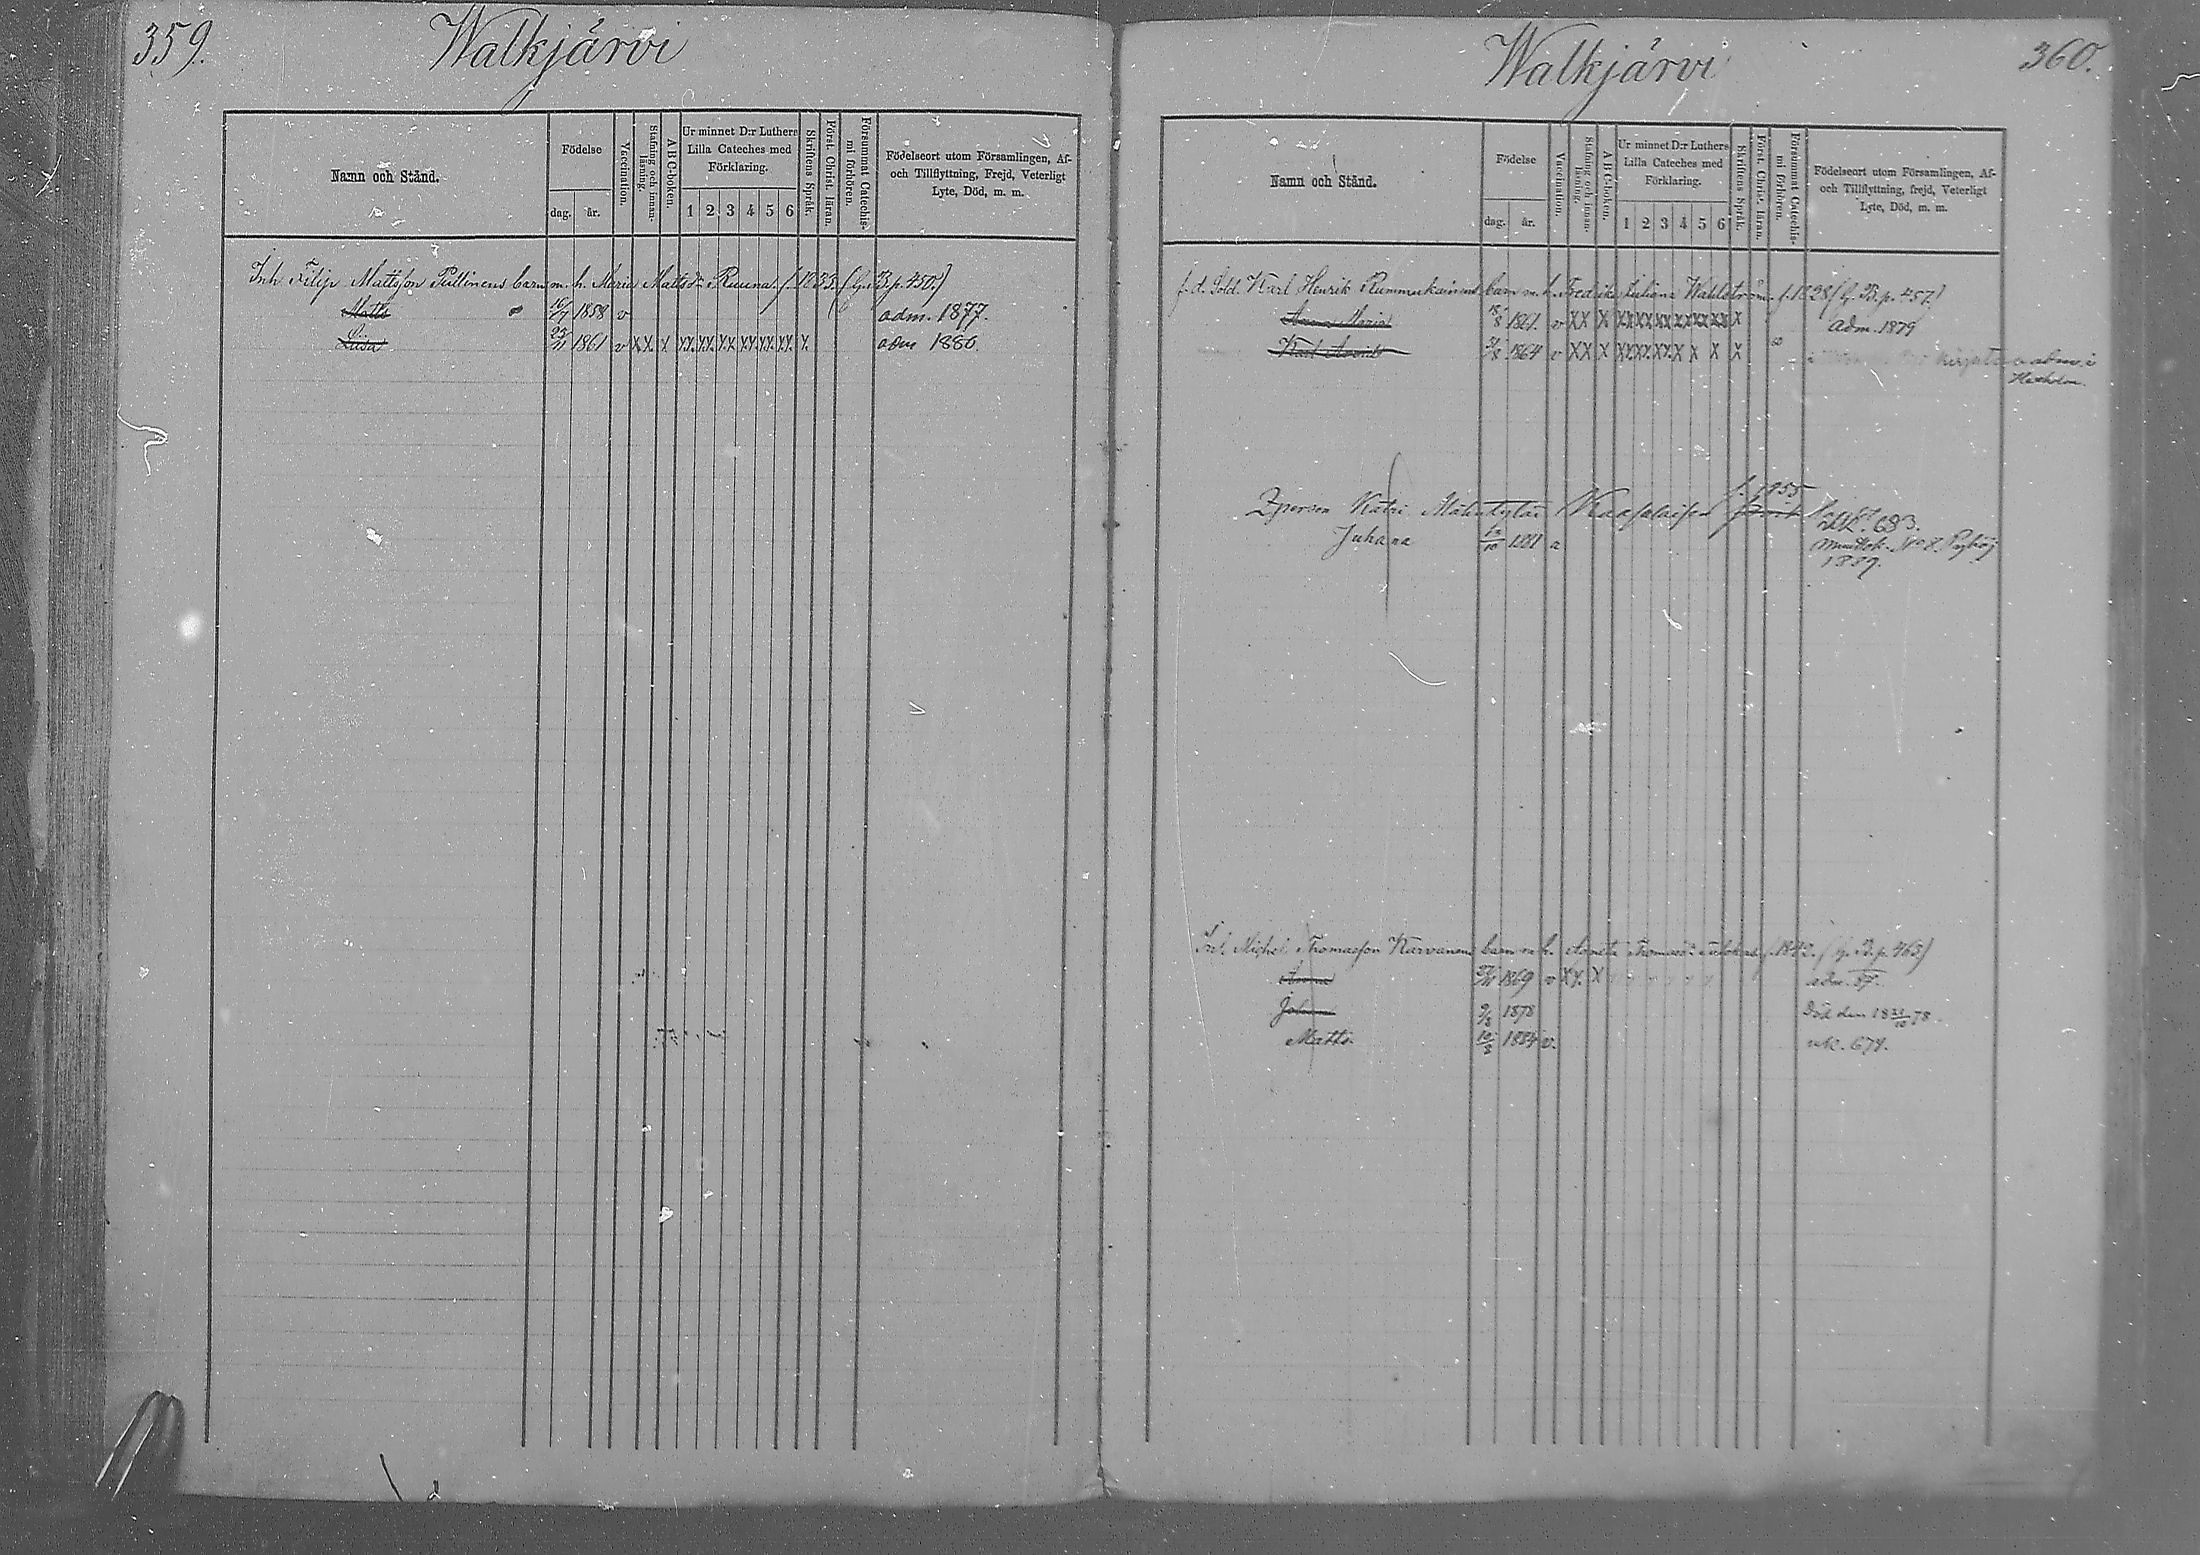 359.
Walkjärvi
Namn och Stånd.
Födelse
dag.
år.
Vaccination.
Stafning och innanläsning.
ABC-boken.
Ur minnet D:r Luthers
Lilla Cateches med
Förklaring.
1 2 3 4 5 6
Skriftens Språk.
Först. Christ. läran.
Försummat Catechismi förhören.
Födelseort utom Församlingen, Af-
och Tillflyttning, Frejd, Veterligt
Lyte, Död, m. m.
Inh Filip Mattsson Pullinens barn m. h. Maria Mattsdr Ruuna f. 1833 B. p. 450.)
Matts 16/7 1858 v adm. 1877.
Liisa 23/11 1861 v XX X XX XX XX XX XX XX X adm 1880.
Walkjärvi
360.
Namn och Stånd.
Födelse
dag.
år.
Vaccination.
Stafning och innanläsning.
ABC-boken.
Ur minnet D:r Luthers
Lilla Cateches med
Förklaring.
1 2 3 4 5 6
Skriftens Språk.
Först. Christ. läran.
Försummat Catechismi förhören.
Födelseort utom Församlingen, Af-
och Tillflyttning, frejd, Veterligt
Lyte, Död, m. m.
f. d. Sold. Karl Henrik Rummukainens barn m. h. Fredrika Juliana Wahlström f. 1828 B. p. 457.)
Anna Maria 18/8 1861. v XX X XX XX XX XX XX XX X adm. 1879
Karl 1864 v XX X XX XX XX X X X X adm. i
Katri f. 1855
Juhana 13/10 1881 a 683.
1889.
Inh. Michel Thomasson Karvanens barn m. h. Agneta Thomasdr f. 1842. B. p. 463)
Anna 1869 v XX X adm. 87.
Johan 9/8 1878 Död den 18 21/10 78.
Matts. 1884 v. 674.